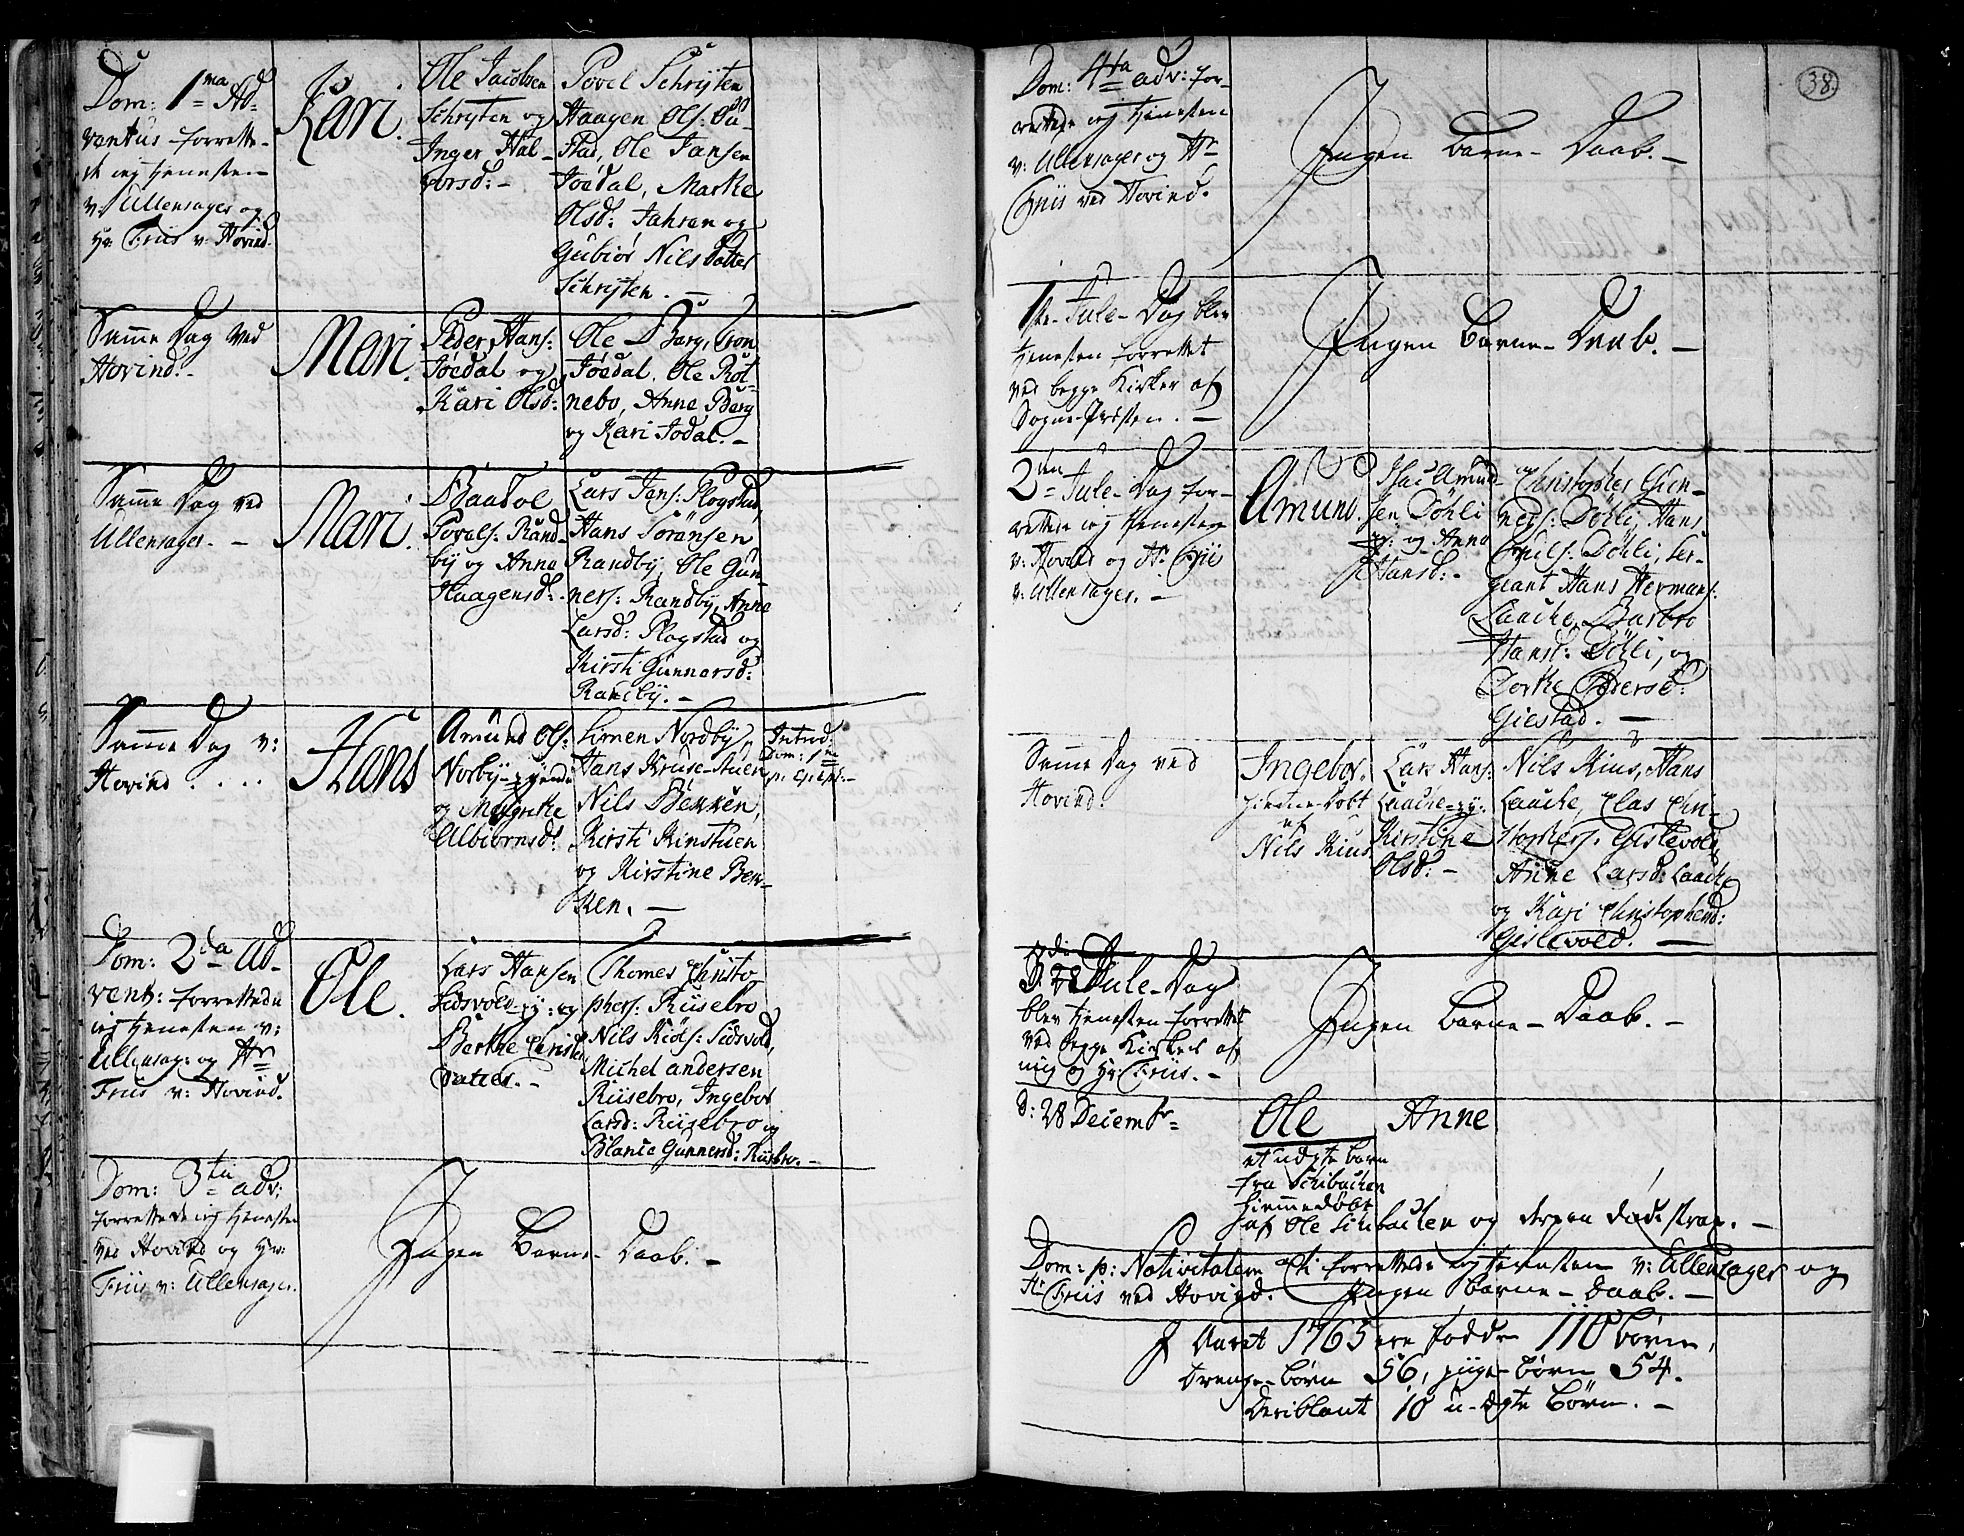 Dom: 1ma Ad-
ventus forrette-
de ieg tienesten
v: Ullensager og
Hr: Friis v: Hovind.
Kari.
Ole Jacobsen
Schrÿten og
Inger Hal-
vorsd: -
Povel Schrÿten
Haagen Ols:
Ole Jansen
Joedal, Marthe
Olsd: Jahren og
Gubiör Nils Datter
Schrÿten. -
Samme Dag ved
Hovind. -
Mari.
Peder Hans:
Joedal og
Kari Olsd:
Ole Berg, Tron
Joedal, Ole Rot-
nebo, Anne Berg
og Kari Jodal. -
Samme Dag ved
Ullensager. -
Mari.
Baardol
Povels: Rand-
by og Anne
Haagensd: -
Lars Jens: Plogstad,
Hans Sörensen
Randby, Ole Gun-
ners: Randby, Anne
Larsd: Plogstad og
Kirsti Gunnersd:
Randbÿ. -
Samme Dag v:
Hovind . . . .
Hans
Amund Ols:
Norbÿ
og Magrethe
Albiörnsd:
Simen Nordbÿ,
Hans Kruse-Stuen
Nils Bekken,
Kirsti Kinstuen
og Kirstine Bek-
ken. -
Introd:
Dom: 1ma
p: Epiph: -
Dom: 2da Ad-
vent: forrettede
ieg tienesten v:
Ullensag: og Hr
Friis v: Hovind.
Ole.
Lars Hansen
Sidsvold og
Berthe Christ
Datter. -
Thomes Christo
phers: Riisebro
Nils Sidsvold,
Michel andersen
Riisebro, Ingebor
Larsd: Riisebro og
Blancia Gunnersd: Riisbro. -
Dom: 3tia adv:
forrettede ieg tienesten
ved Hovind og Hr:
Friis v: Ullensager.
Ingen Barne-Daab. -
38.
Dom: 4ta adv: for-
rettede ieg tienesten
v: Ullensager og Hr
Friis ved Hovind.
Ingen Barne-Daab. -
1ste Jule-Dag blev
tienesten forrettet
ved begge Kirker af
Sogne-Præsten. -
Ingen Barne-Daab. -
2den Jule-Dag for-
rettede ieg tienesten
v: Hovind og Hr Friis
v: Ullensager. -
Amund.
Isac Amund-
sen Döhli
og Anne
Hansd: -
Christopher Gun-
ners: Döhli, Hans
Döhli, Ser-
geant Hans Hermans:
Laache, Barbro
Hansd: Döhli, og
Dorthe Pedersd:
Giestad. -
Samme Dag ved
Hovind.
Ingebor.
hiemme-Döbt
af
Nils Kius
Lars Hans:
Laache og
Kirstine
Olsd: -
Nils Kius, Hans
Laache, Clas Chri-
stophers: Gislevold,
Anne Larsd: Laache
og Kari Christophersd:
Gislevold. -
3die Jule-Dag
blev tienesten forrettet
ved begge Kirker af
mig og Hr: Friis. -
Ingen Barne-Daab. -
d: 28 Decembr
Ole Anne
et uægte barn
fra Schibachen
hiemmedöbt
af Ole Schibachen og derpaa döde strax. -
Dom: p: Nativitatem Chr: forrettede ieg tienesten v: Ullensager og
Hr Friis ved Hovind. Ingen Barne-Daab. -
I Aaret 1765 ere fødde 110 börn,
Drenge-börn 56, pige-börn 54.
Deriblant 10 u-ægte börn. -